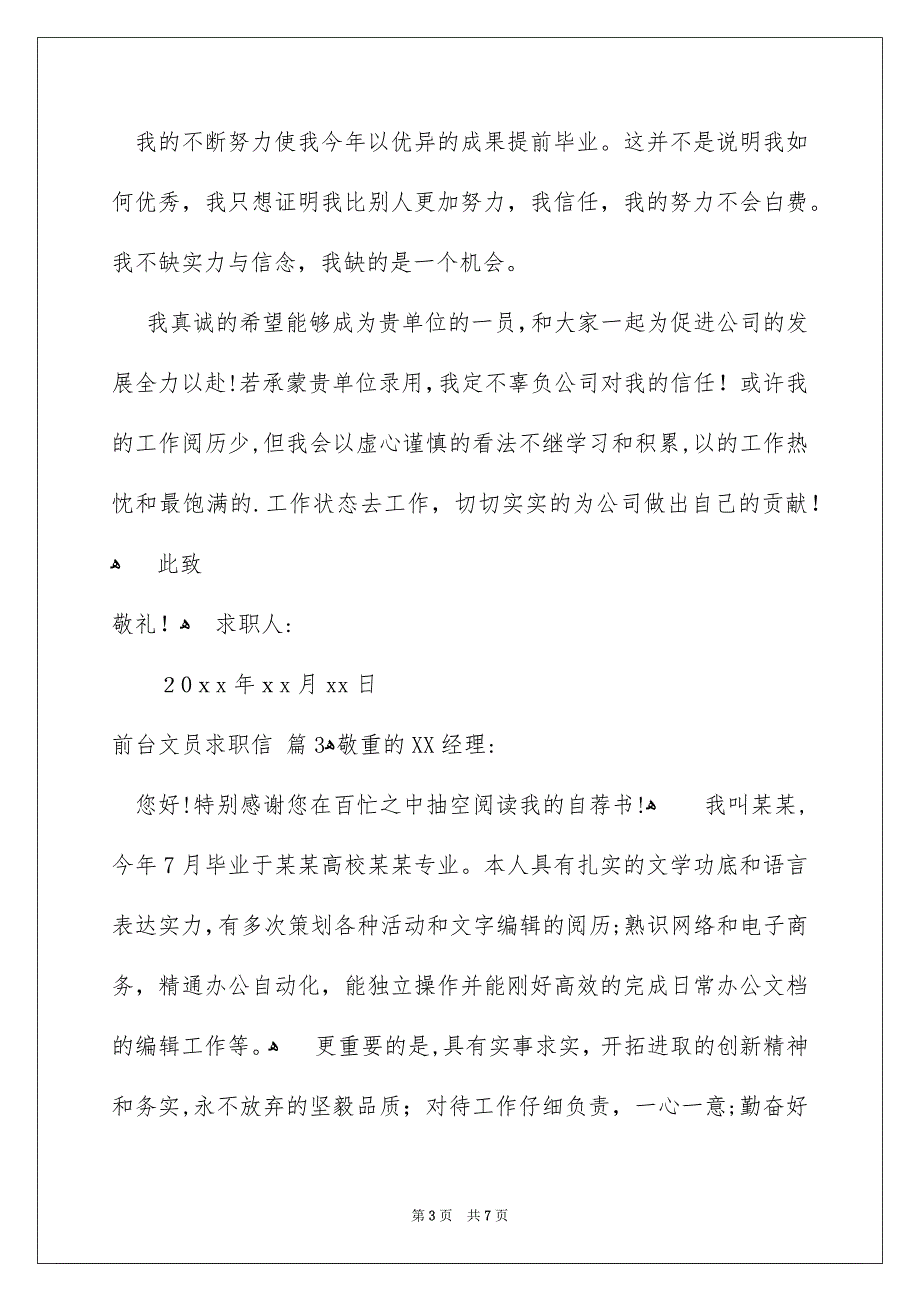 我的不断努力使我今年以优异的成果提前毕业。这并不是说明我如
何优秀，我只想证明我比别人更加努力，我信任，我的努力不会白费。
我不缺实力与信念，我缺的是一个机会。
我真诚的希望能够成为贵单位的一员,和大家一起为促进公司的发
展全力以赴!若承蒙贵单位录用,我定不辜负公司对我的信任！或许我
的工作阅历少,但我会以虚心谨慎的看法不继学习和积累,以的工作热
忱和最饱满的.工作状态去工作，切切实实的为公司做出自己的贡献！
ﻫ 此致
敬礼！ﻫ 求职人:
20xx年xx月xx日
前台文员求职信 篇3ﻫ敬重的XX经理:
您好!特别感谢您在百忙之中抽空阅读我的自荐书!ﻫ 我叫某某,
今年7月毕业于某某高校某某专业。本人具有扎实的文学功底和语言
表达实力,有多次策划各种活动和文字编辑的阅历;熟识网络和电子商
务，精通办公自动化，能独立操作并能刚好高效的完成日常办公文档
的编辑工作等。ﻫ 更重要的是,具有实事求实，开拓进取的创新精神
和务实,永不放弃的坚毅品质；对待工作仔细负责，一心一意;勤奋好
第3页 共7页